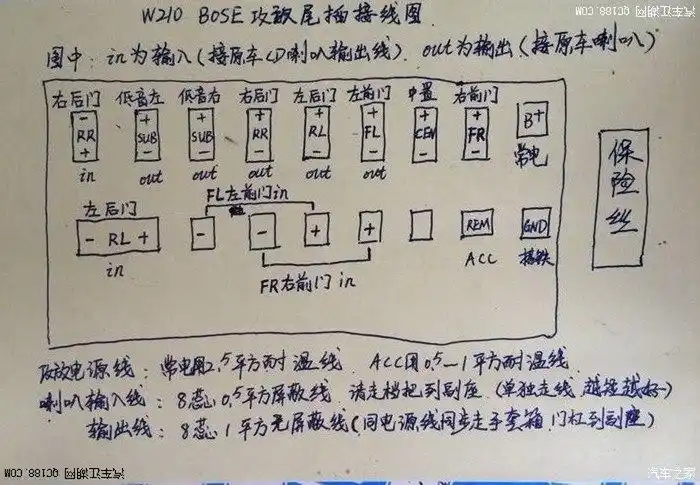 汽车江湖网
QC188.COM
W210 BOSE 功放尾插接线图
图中: in为输入(接原车CD喇叭输出线). out为输出(接原车喇叭)
右后门 低音左 低音右 右后门 左后门 左前门 中置 右前门
- + + + + + + + B+
RR SUB SUB RR RL FL CEN FR
+ - - - - - - -
in out out out out out 常电
保险丝
FL左前门in
左后门
- RL + - - + + REM GND
in ACC 搭铁
FR右前门 in
功放电源线: 常电用2.5平方耐温线. ACC用0.5—1平方耐温线
喇叭输入线: 8芯0.5平方屏蔽线 请走档把到副座 (单独走线 越短越好)
输出线: 8芯1平方无屏蔽线(同电源线同步走手套箱 门杠到副座)
WWW.QC188.COM 汽车江湖网
汽车之家